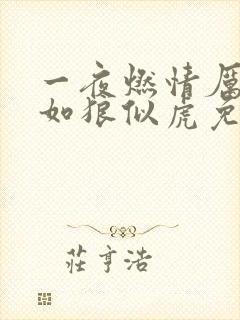 一夜燃情厲
如狼似虎免
莊亨浩